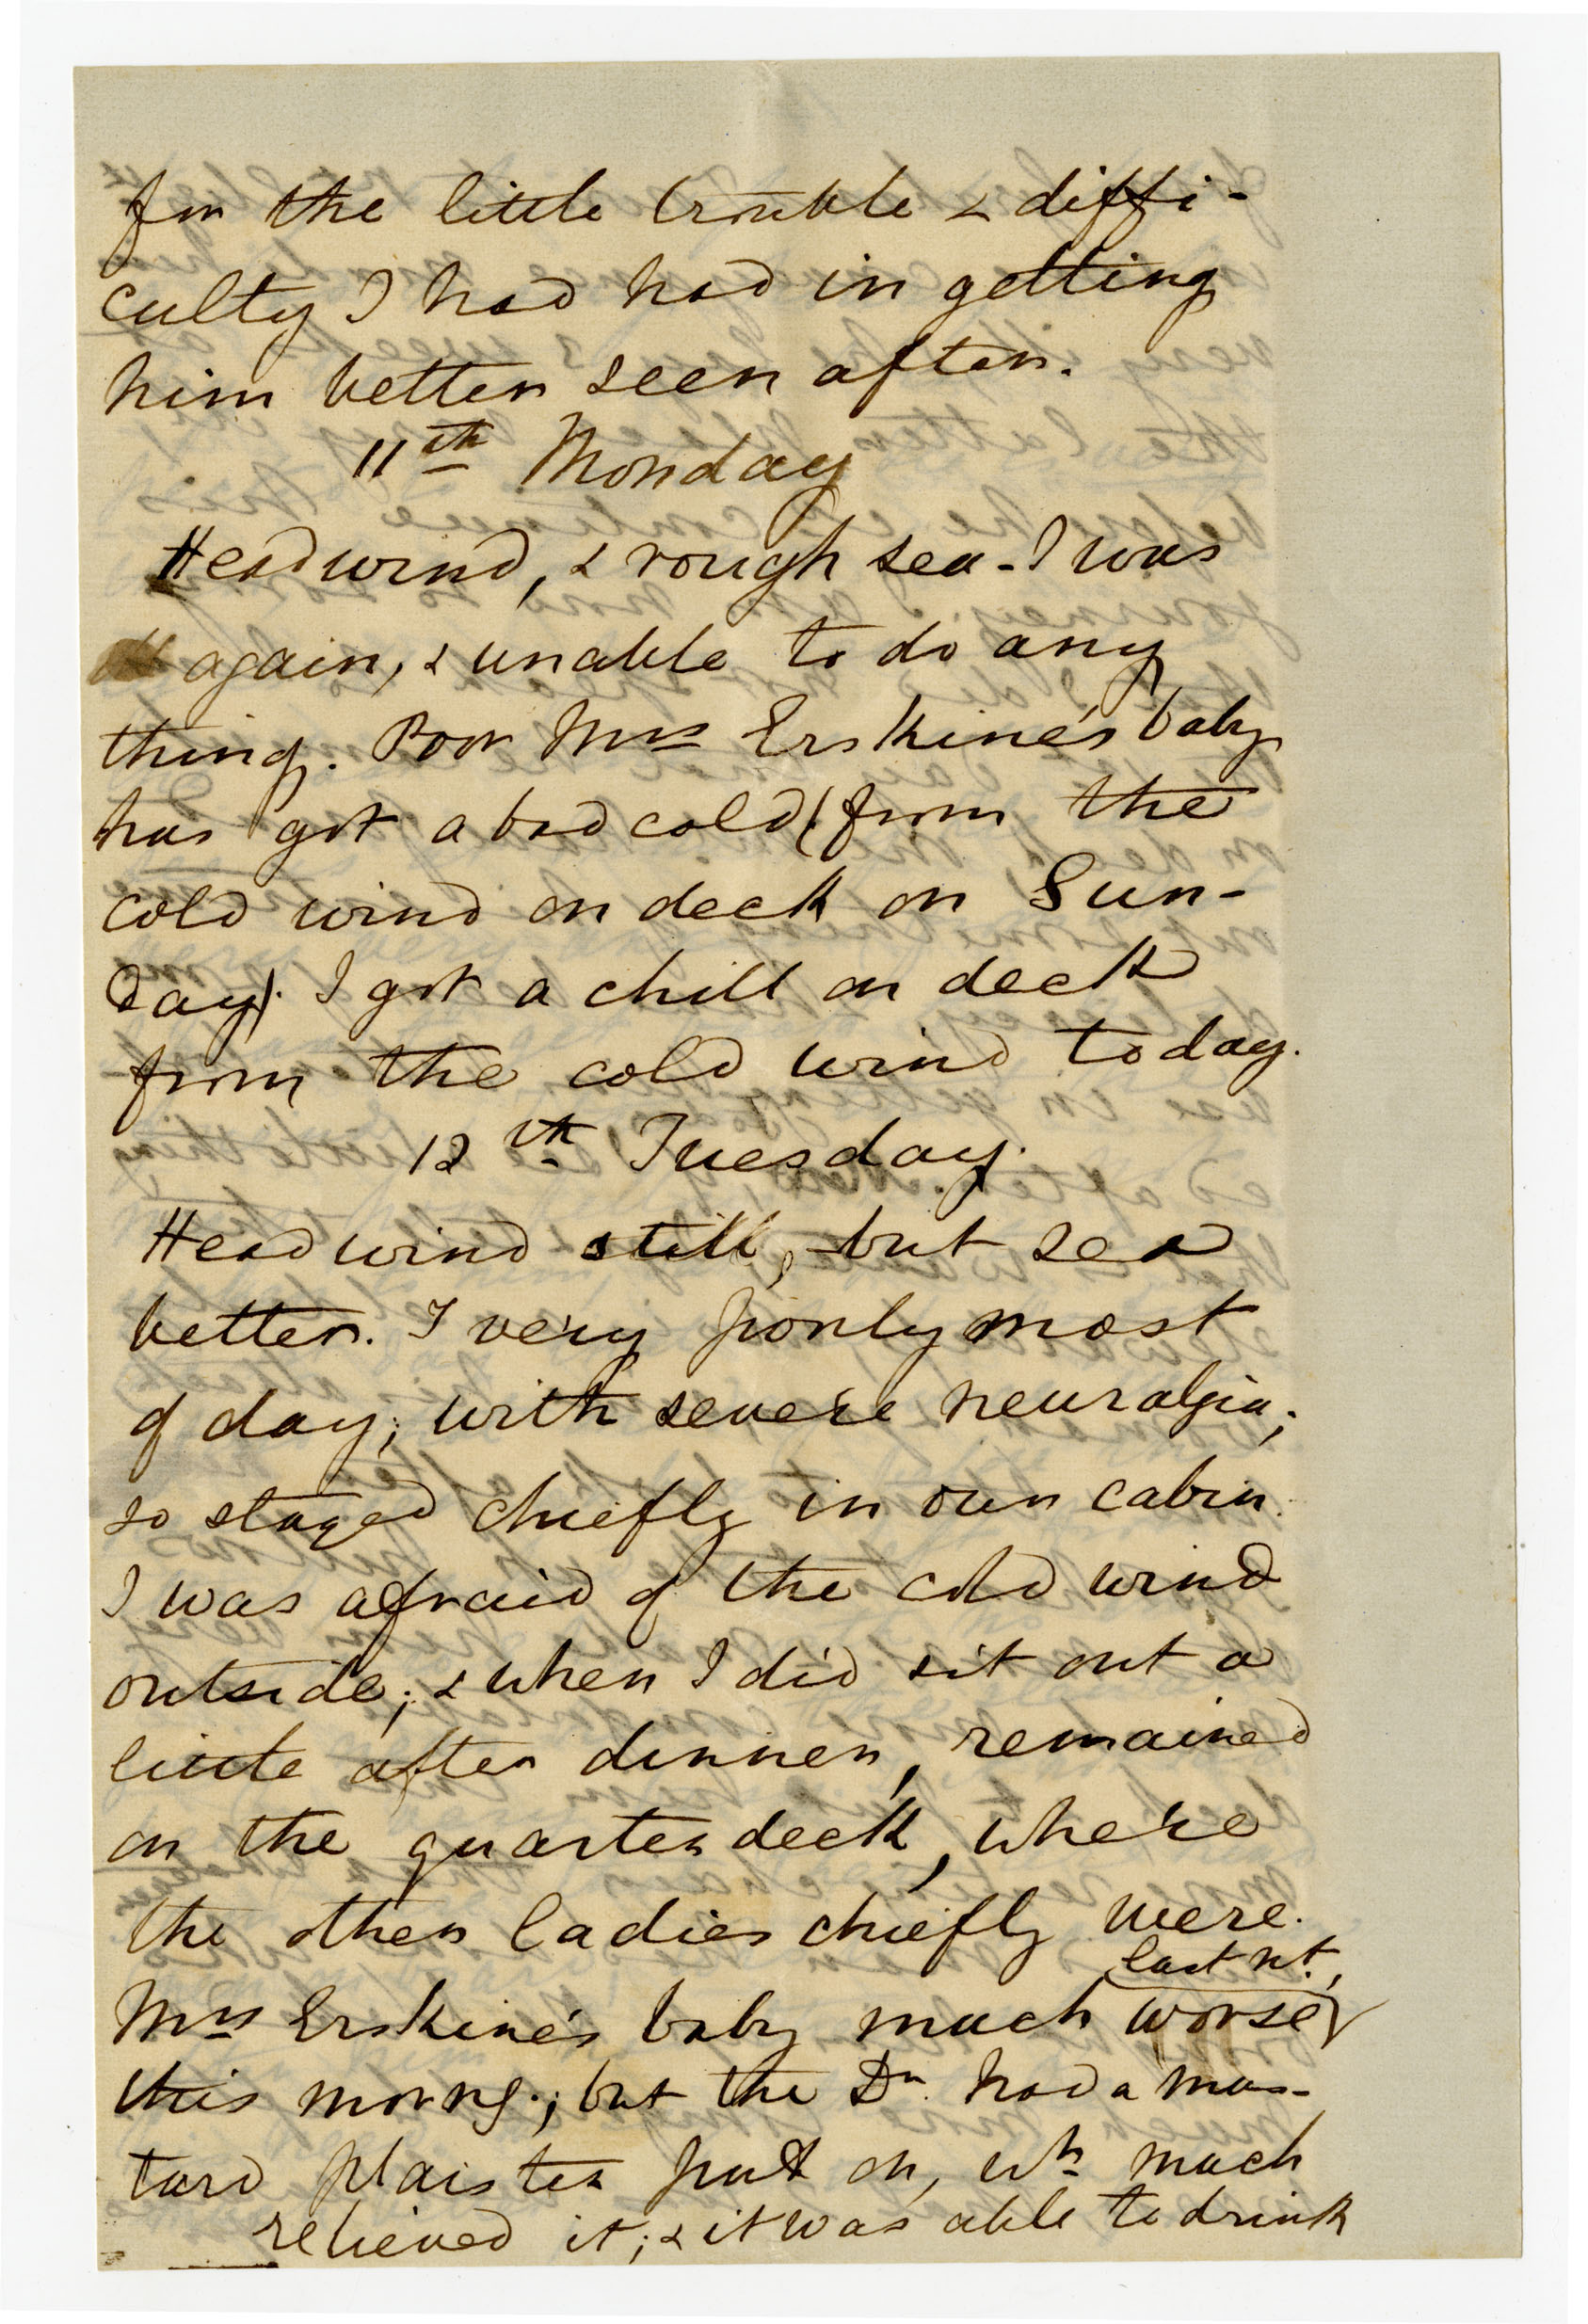 for the little trouble & diffi-
culty I had had in getting
him better seen after.
11th Monday
Head wind, & rough sea - I was
ill again, & unable to do any
thing. Poor Mrs Erskine's baby
has got a bad cold (from the
cold wind on deck on Sun-
day). I got a chill on deck
from the cold wind today.
12th Tuesday.
Head wind still, but sea
better. I very poorly most
of day; with severe neuralgia;
so stayed chiefly in own cabin.
I was afraid of the cold wind
outside; & when I did sit out a
little after dinner, remained
on the quarter deck, where
the other ladies chiefly were.
last nt.,
Mrs Erskine's baby much worse
this morng.; but the Dr. had a mus-
tard plaister put on, wh much
relieved it; & it was able to drink